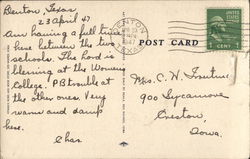 Benton, Texas
23 April 47
Am having a full time
here between the two
schools. The Lord is
blessing at the Womens
College. PB trouble at
the other ones. Very
warm and damp
here.
Chas.
DENTON
TEXAS
1947
POST CARD
1 CENT 1
Mrs. C. W.
900 Sycamore
Creston,
Iowa.